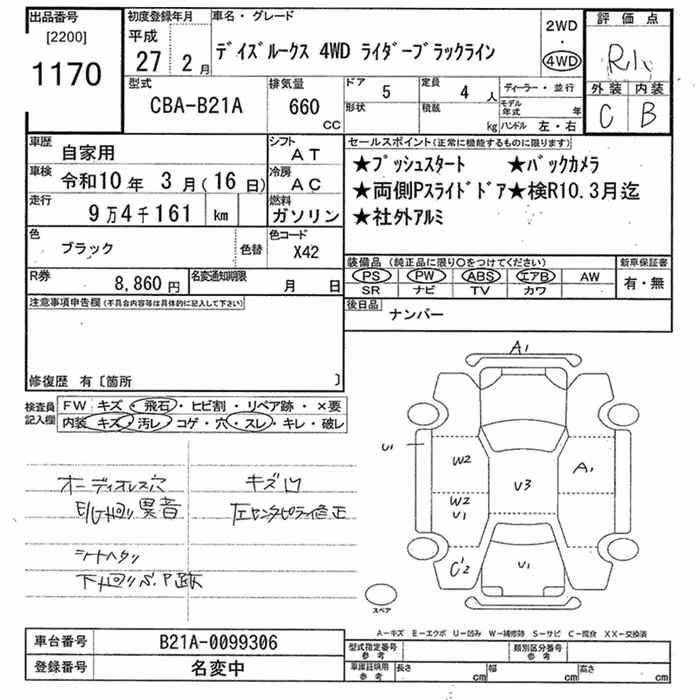 出品番号
[2200]
1170
初度登録年月
平成
27 2月
車名・グレード
デイズルークス 4WD ライダーブラックライン
2WD
・
4WD
評価点
R1
外装 内装
C B
型式
CBA-B21A
排気量
660
CC
ドア
5
定員
4 人
形状
積載
kg
ディーラー・並行
モデル年式 年
ハンドル 左・右
車歴
自家用
シフト
AT
車検
令和10年 3月(16日)
冷房
AC
走行
9万4千161 km
燃料
ガソリン
色
ブラック
色替
色コード
X42
R券
8,860円
名変通知期限
月 日
セールスポイント(正常に機能するものに限ります)
★プッシュスタート ★バックカメラ
★両側Pスライドドア★検R10.3月迄
★社外アルミ
装備品(純正品に限り○をつけてください)
PS PW ABS エアB AW
SR ナビ TV カワ
新車保証書
有・無
後日品
ナンバー
注意事項申告欄(不具合内容等は具体的に記入して下さい)
修復歴 有〔箇所 〕
検査員記入欄
FW キズ・飛石・ヒビ割・リペア跡・×要
内装 キズ・汚レ・コゲ・穴・スレ・キレ・破レ
オーディオレス穴
E/G廻り異音
シートヘタリ
下廻りサビP跡
キズ凹
左センターピラー修正
A1
U1
W2
W2
U1
U3
A1
C2
U1
スペア
A-キズ E-エクボ U-凹ミ W-補修跡 S-サビ C-腐食 XX-交換済
車台番号
B21A-0099306
登録番号
名変中
型式指定番号
参考
類別区分番号
参考
車庫証明用
参考
長さ cm
幅 cm
高さ cm